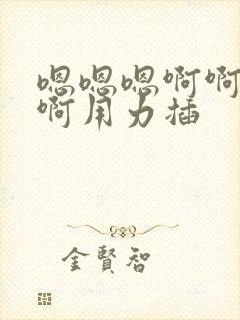 嗯嗯嗯啊啊
啊用力插
金賢智